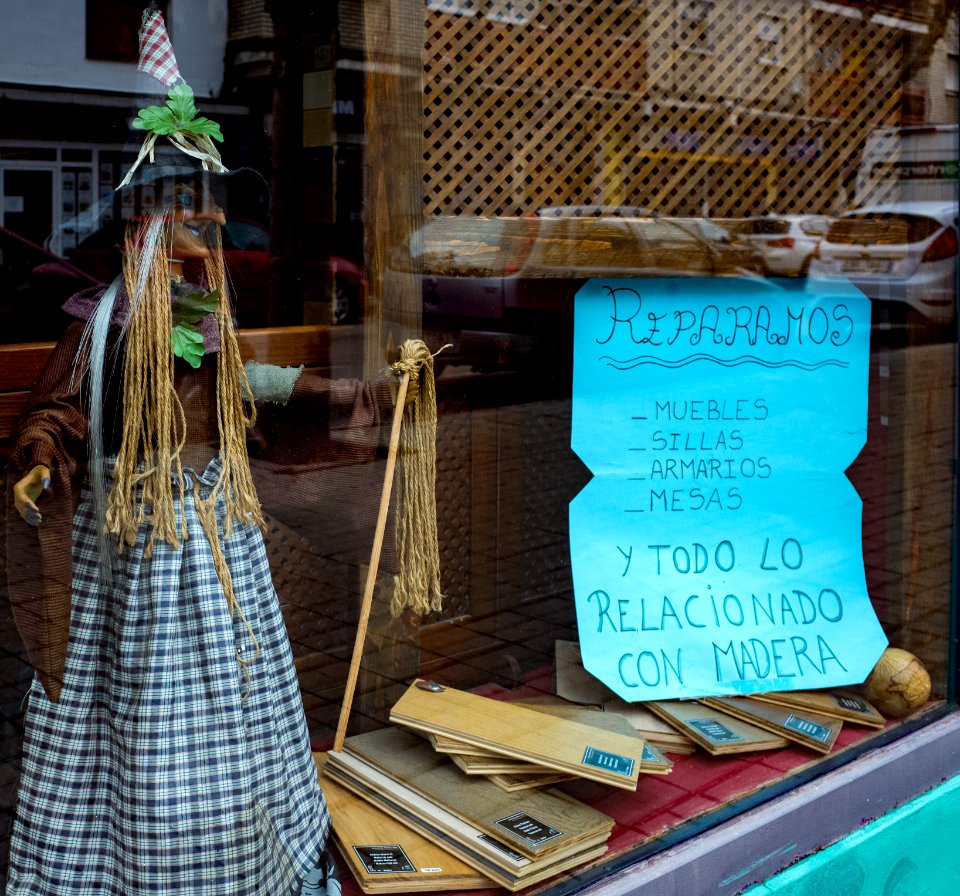 REPARAMOS
_ MUEBLES
_ SILLAS
_ ARMARIOS
_ MESAS
Y TODO LO
RELACIONADO
CON MADERA